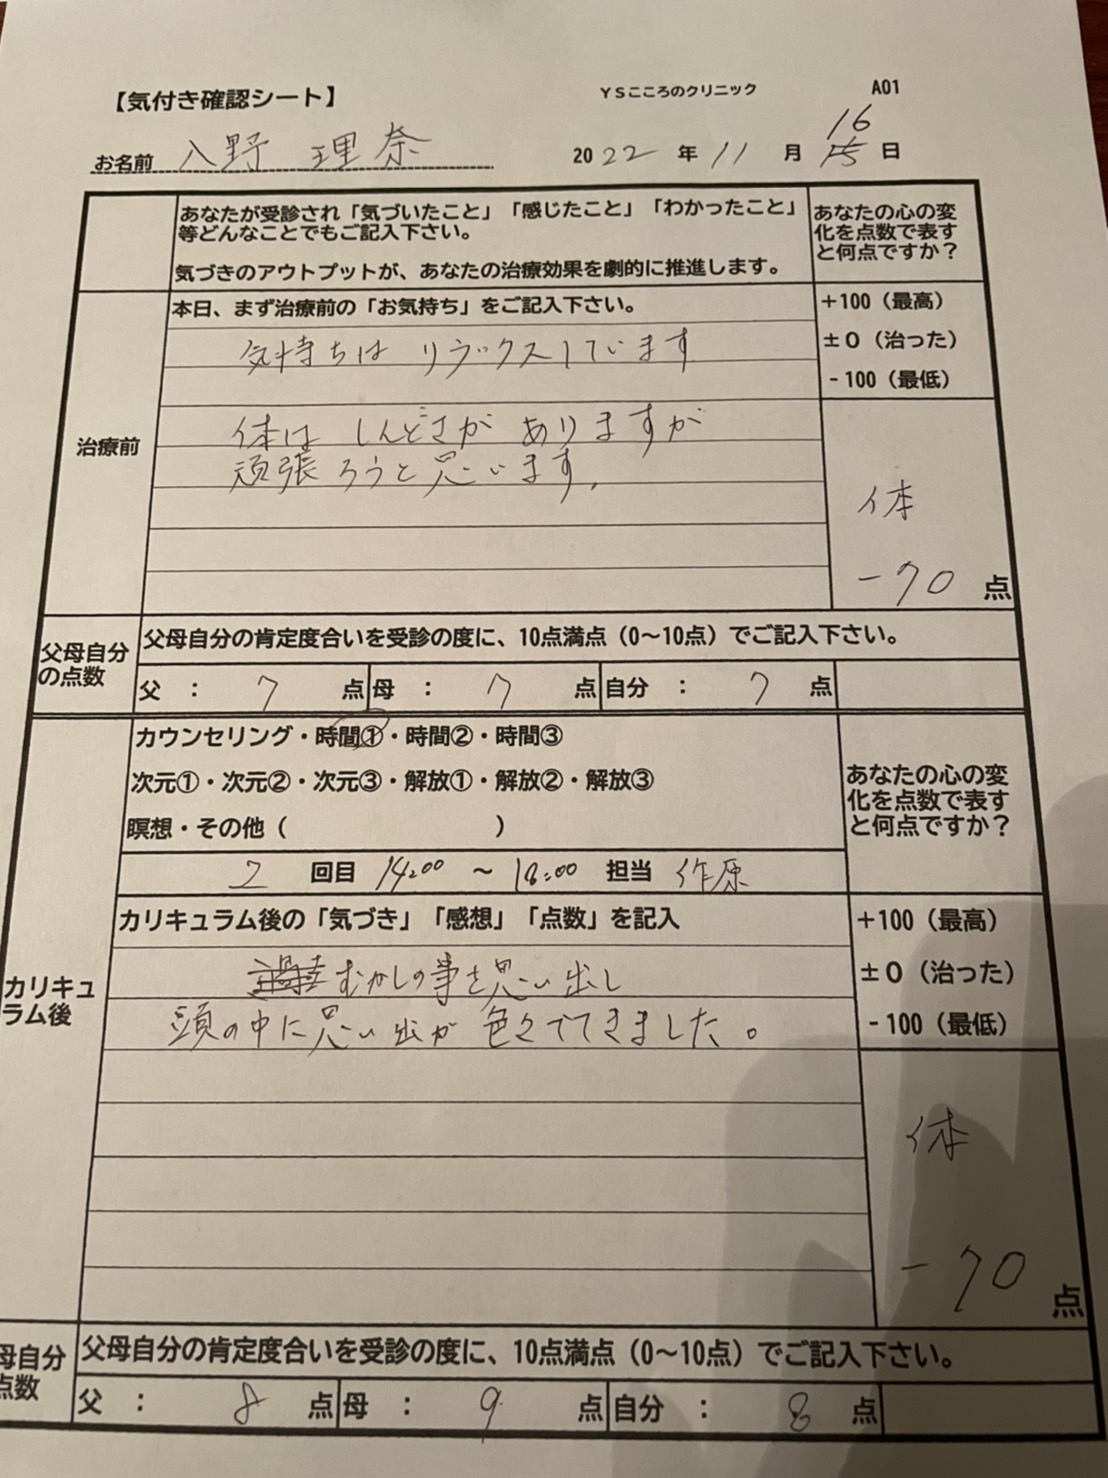 【気付き確認シート】
YSこころのクリニック
A01
お名前 入野 理奈
2022年11月16日
あなたが受診され「気づいたこと」「感じたこと」「わかったこと」
等どんなことでもご記入下さい。
気づきのアウトプットが、あなたの治療効果を劇的に推進します。
あなたの心の変
化を点数で表す
と何点ですか？
治療前
本日、まず治療前の「お気持ち」をご記入下さい。
気持ちは リラックスしています
体は しんどさが ありますが
頑張ろうと思います。
+100（最高）
±0（治った）
-100（最低）
体
-70 点
父母自分
の点数
父母自分の肯定度合いを受診の度に、10点満点（0〜10点）でご記入下さい。
父 ： 7 点 母 ： 7 点 自分 ： 7 点
カウンセリング・時間①・時間②・時間③
次元①・次元②・次元③・解放①・解放②・解放③
瞑想・その他（ ）
2 回目 14:00 〜 18:00 担当 作原
あなたの心の変
化を点数で表す
と何点ですか？
カリキュ
ラム後
カリキュラム後の「気づき」「感想」「点数」を記入
むかしの事を思い出し
頭の中に思い出が色々でてきました。
+100（最高）
±0（治った）
-100（最低）
体
-70 点
母自分
点数
父母自分の肯定度合いを受診の度に、10点満点（0〜10点）でご記入下さい。
父 ： 8 点 母 ： 9 点 自分 ： 8 点